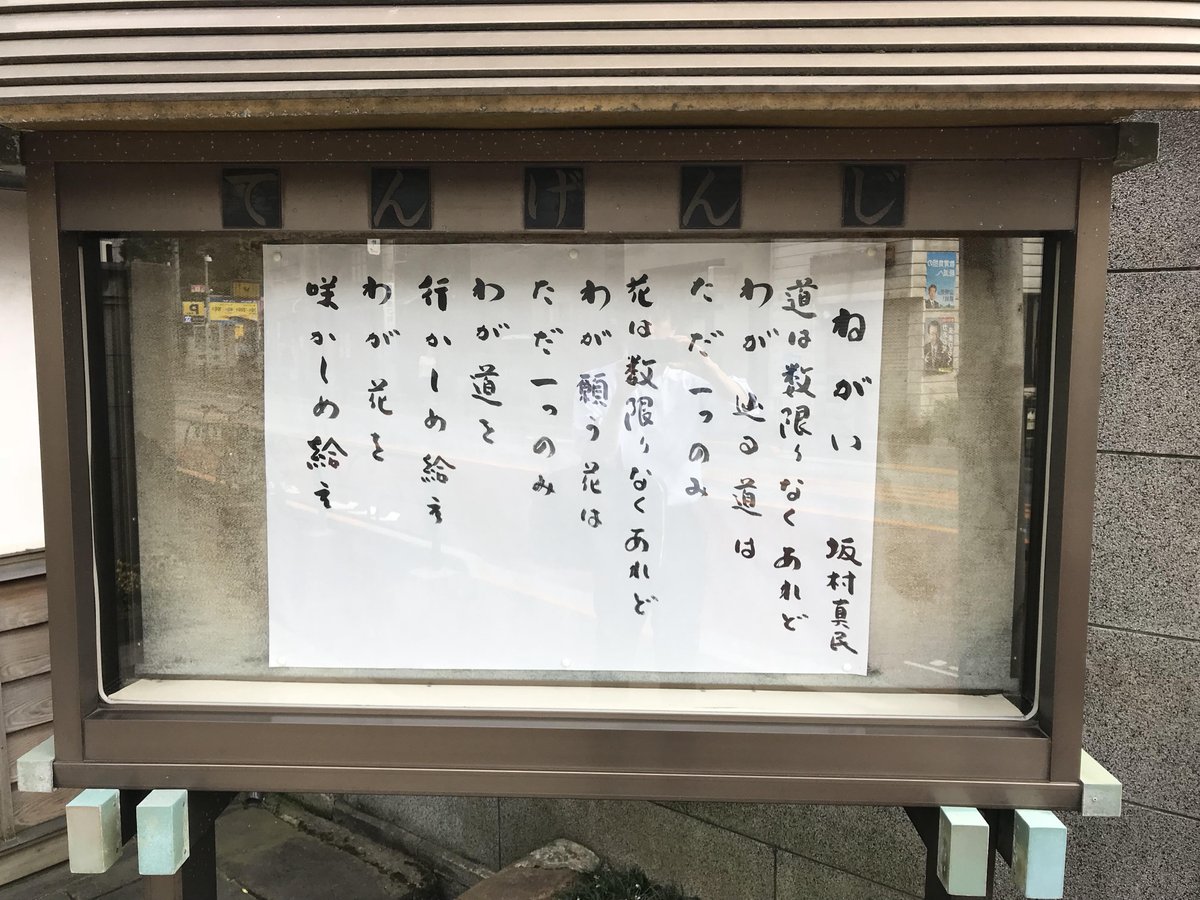 てんげんじ
ねがい 坂村真民
道は数限りなくあれど
わが辿る道は
ただ一つのみ
花は数限りなくあれど
わが願う花は
ただ一つのみ
わが道を
行かしめ給え
わが花を
咲かしめ給え
P